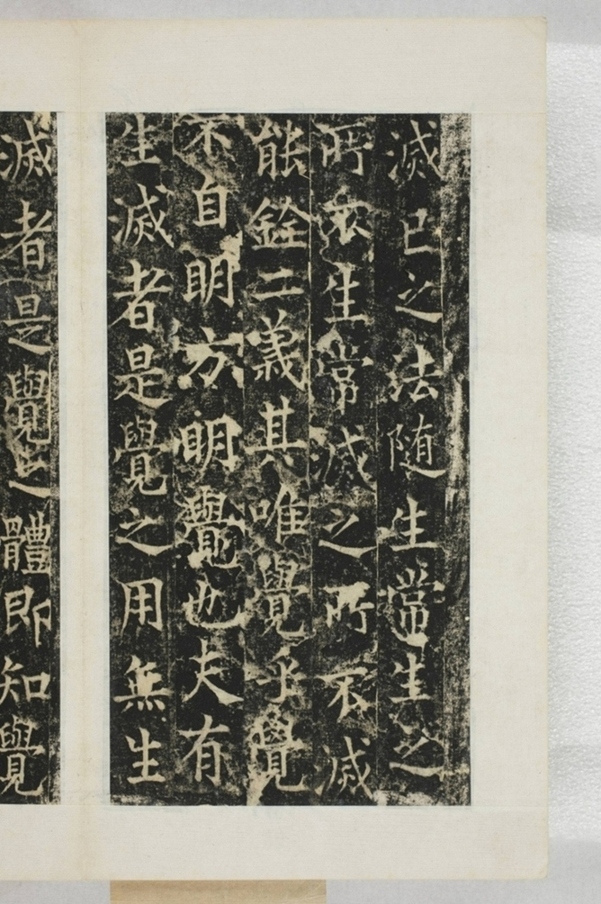 滅已之法随生常生之
所不生常滅之所不滅
能銓二義其唯覺乎覺
不自明方明覺也夫有
生滅者是覺之用無生
滅者是覺之體即知覺